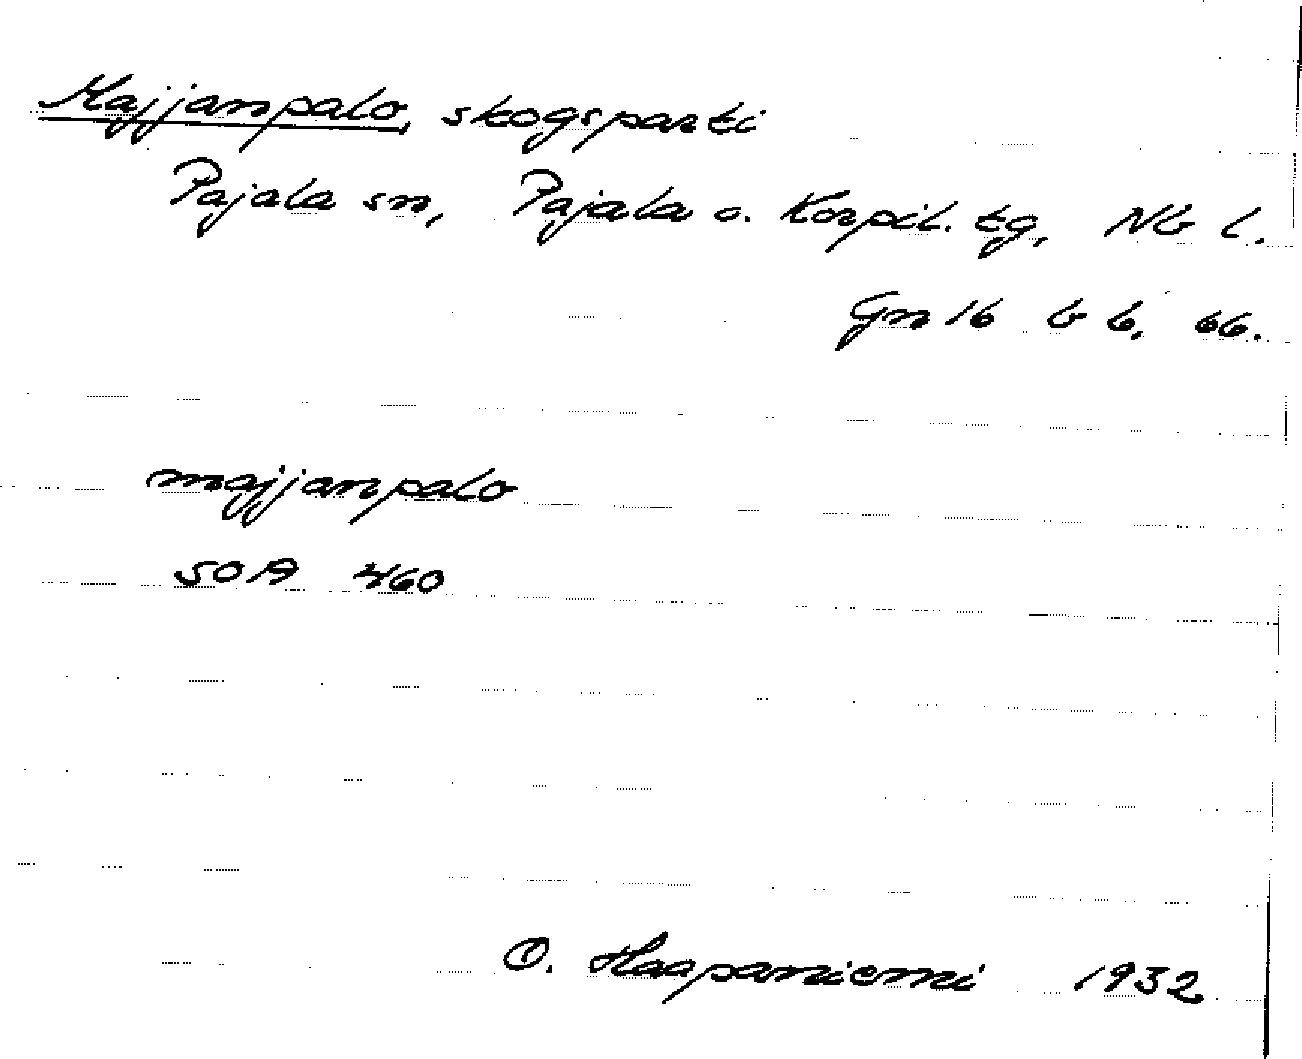 Majjanpalo, skogsparti
Pajala sn, Pajala o. Korpil. tg, Nb l.
Gn 16 b 6, 66.
majjanpalo
SOA 460
O. Haapaniemi 1932